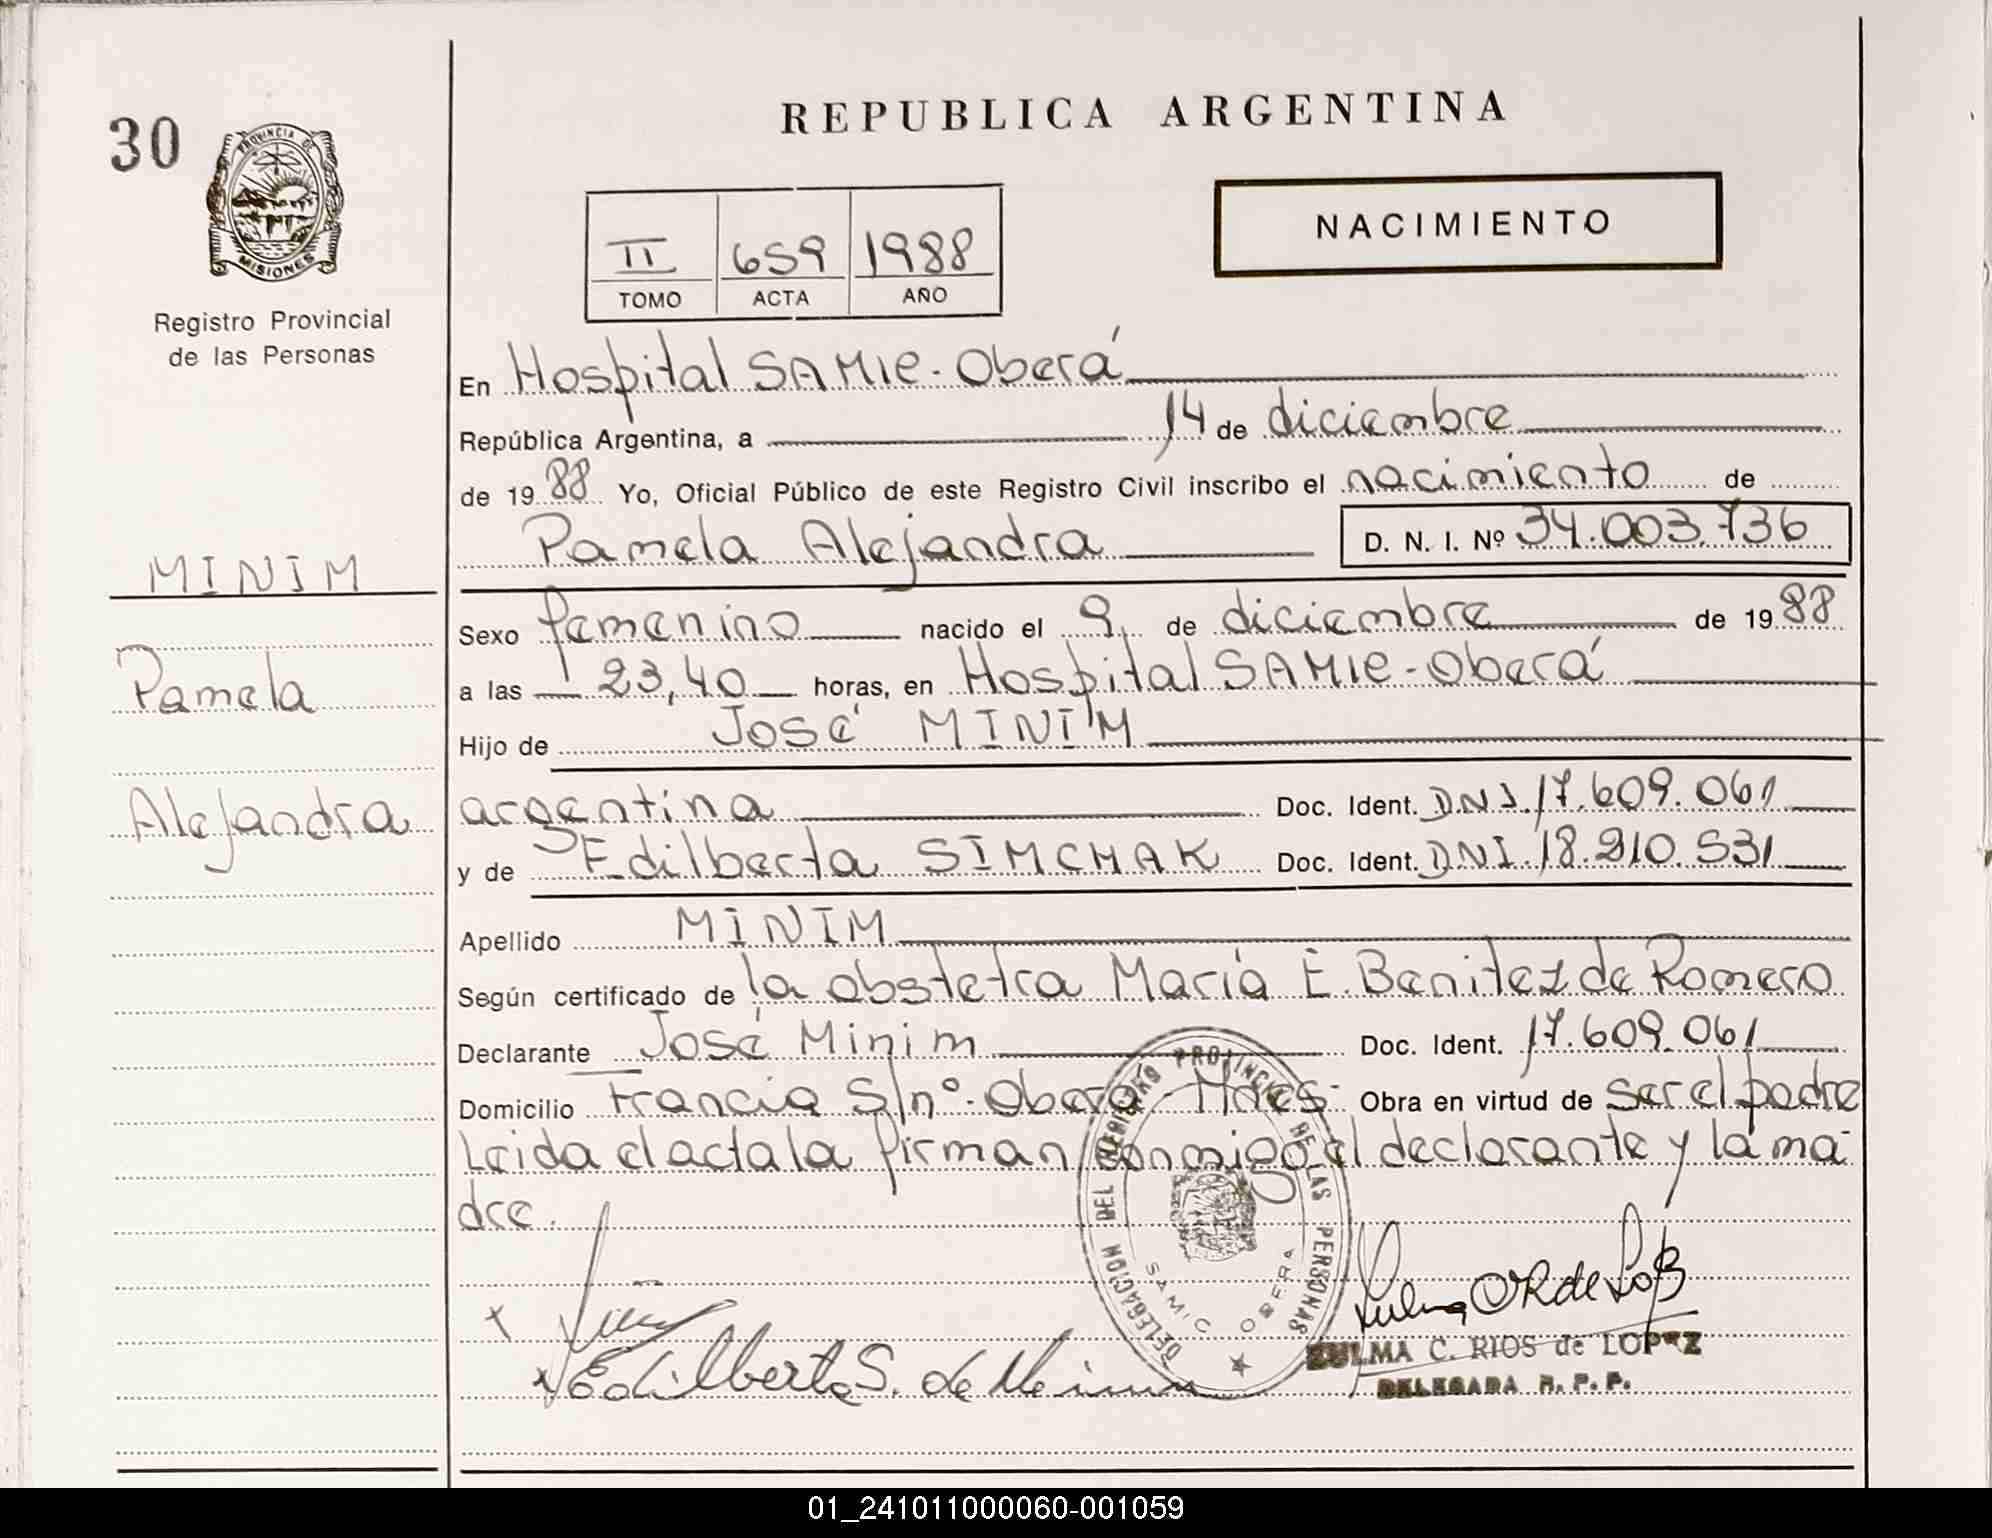 REPUBLICA ARGENTINA
30
PROVINCIA DE
MISIONES
Registro Provincial
de las Personas
NACIMIENTO
II 659 1988
TOMO ACTA AÑO
En Hospital SAMIC - Oberá
República Argentina, a 14 de diciembre
de 1988 Yo, Oficial Público de este Registro Civil inscribo el nacimiento de
Pamela Alejandra D. N. I. Nº 34.003.736
MINIM
Pamela
Alejandra
Sexo femenino nacido el 9 de diciembre de 1988
a las 23,40 horas, en Hospital SAMIC - Oberá
Hijo de José MINIM
argentina Doc. Ident. DNI. 17.609.061
y de Edilberta SIMCHAK Doc. Ident. DNI. 18.210.531
Apellido MINIM
Según certificado de la obstetra María E. Benitez de Romero
Declarante José Minim Doc. Ident. 17.609.061
Domicilio Francia S/nº - Oberá - Mnes - Obra en virtud de ser el padre
Leida el acta la firman conmigo el declarante y la ma-
dre.
DELEGACION DEL REGISTRO PROVINCIAL DE LAS PERSONAS
SAMIC OBERA
Edilberta S. de Minim
ZULMA C. RIOS de LOPEZ
DELEGADA R. P. P.
01_241011000060-001059